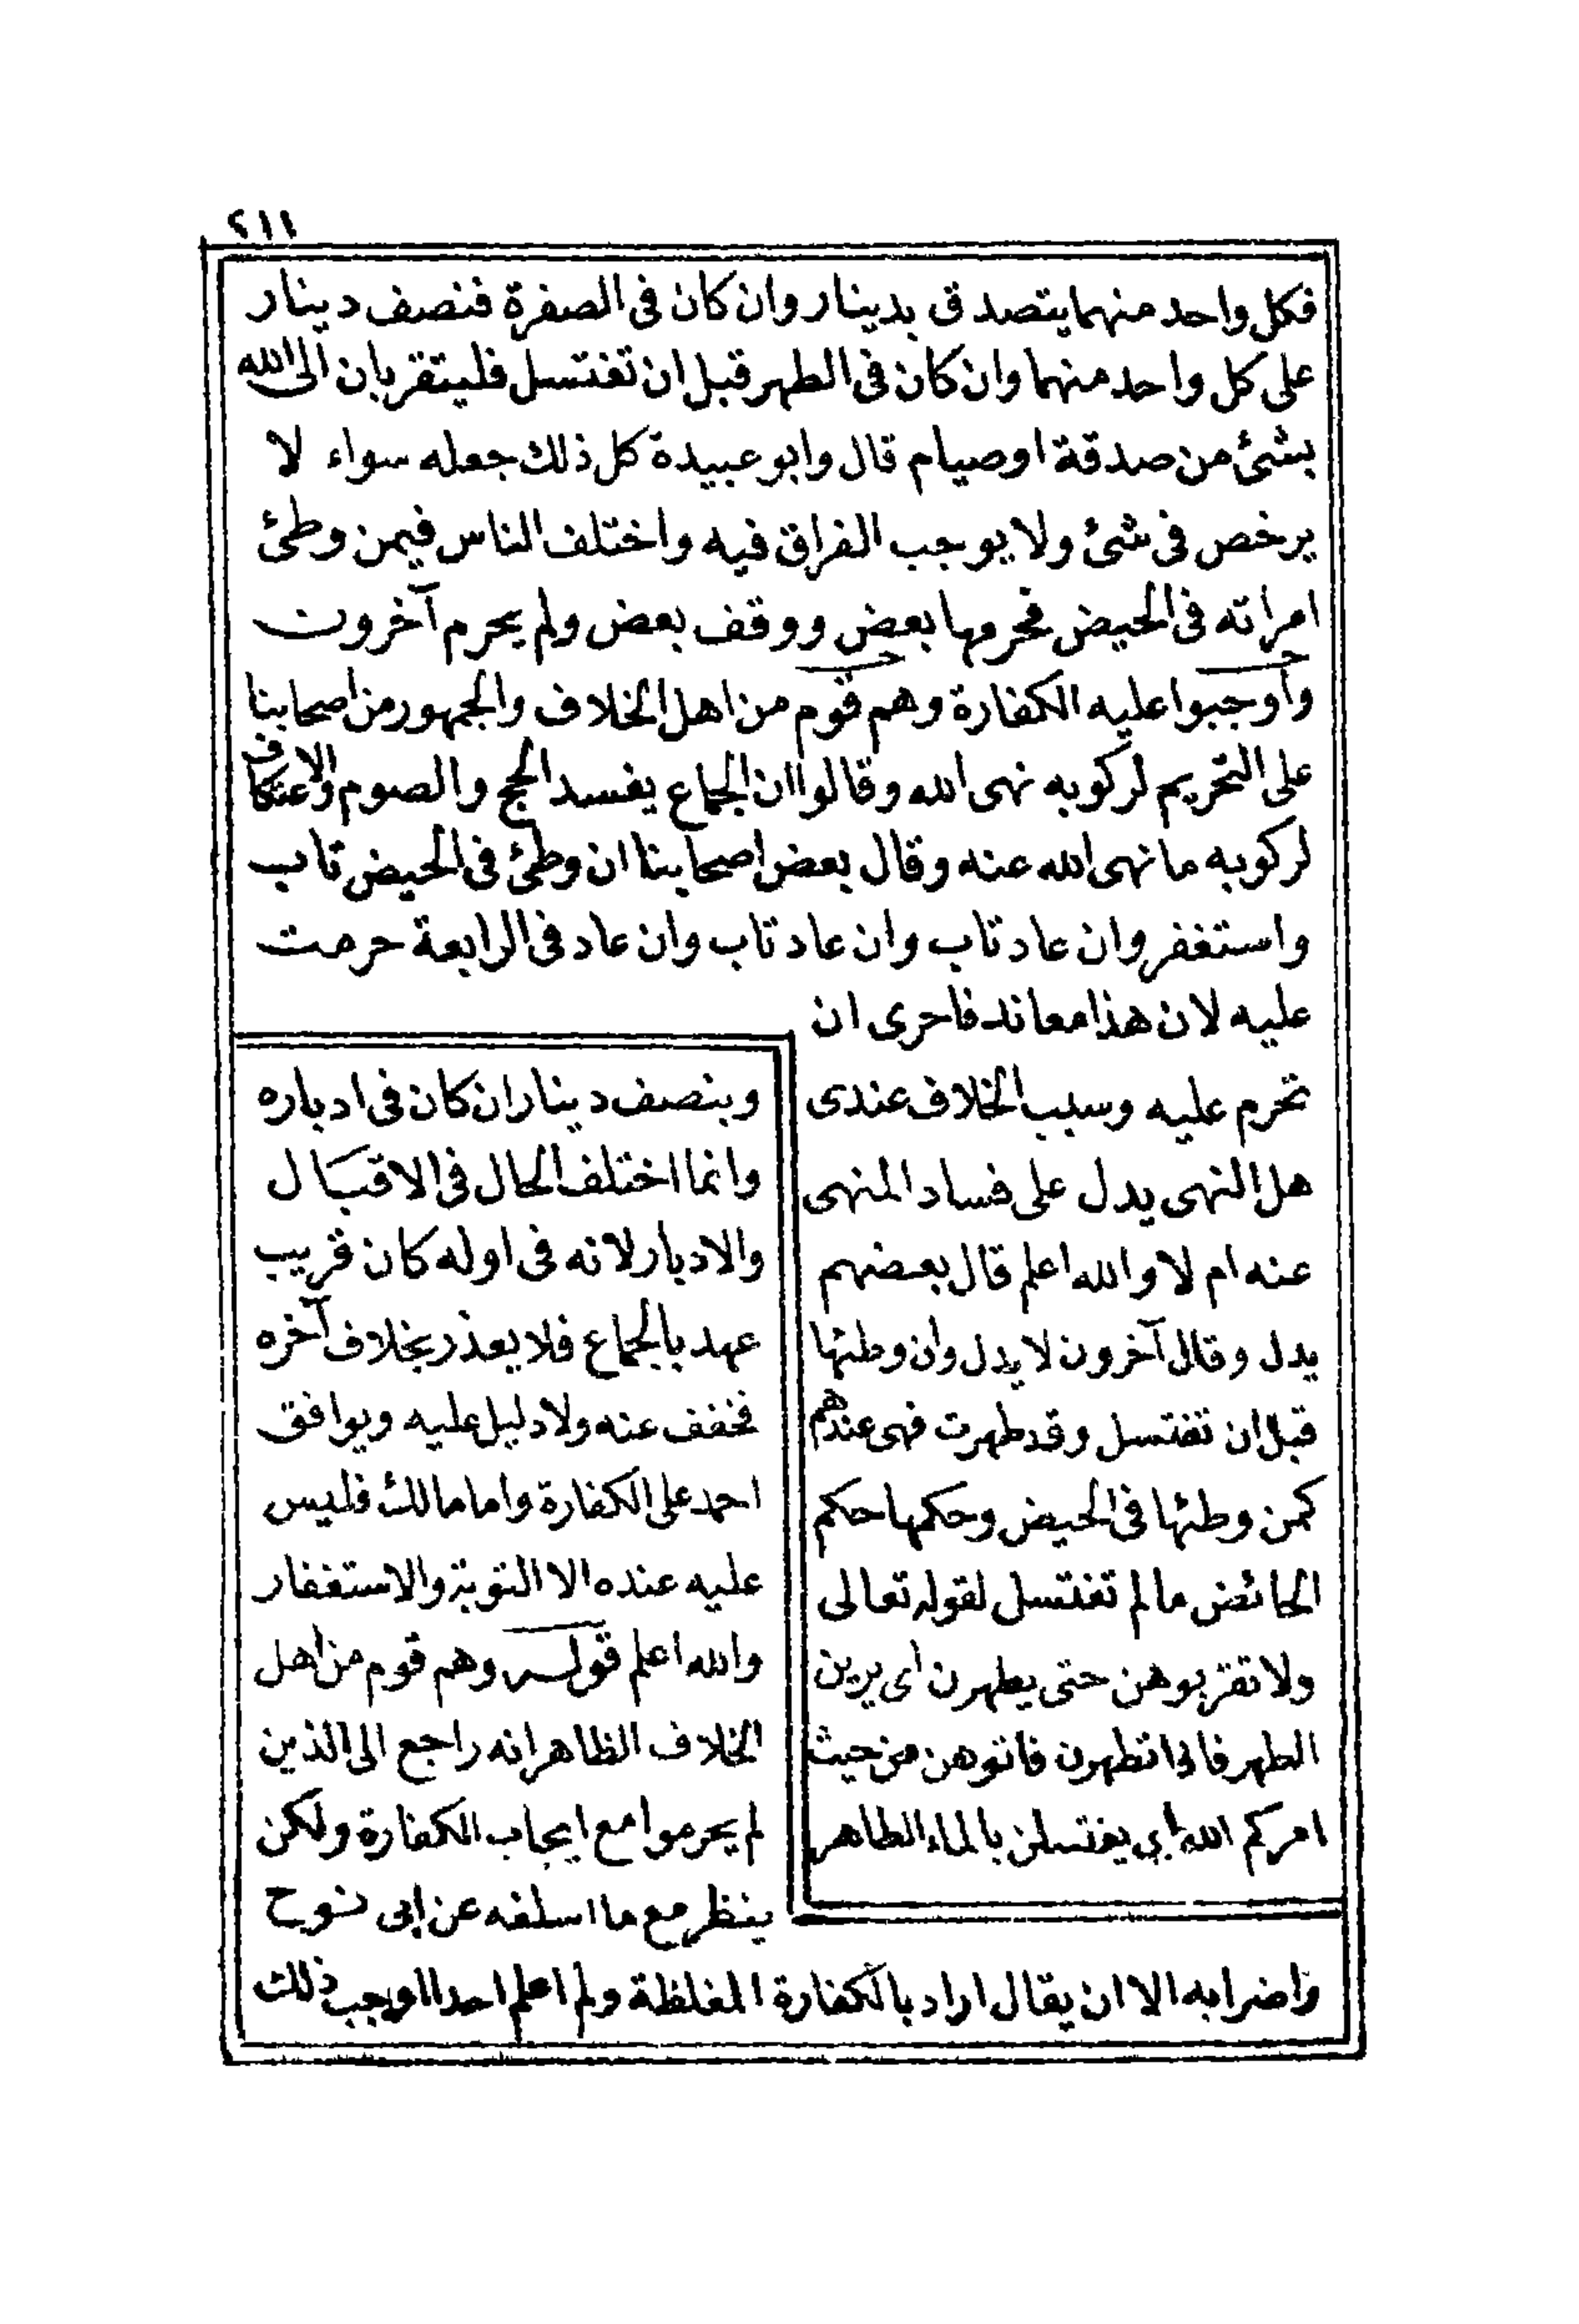 ٢١١
فكل واحد منهما يتصدق بدينار وان كان فى الصفرة فنصف دينار
على كل واحد منهما وان كان فى الطهر قبل ان تغتسل فليتقربان الى الله
بشئ من صدقة او صيام قال وابو عبيدة كل ذلك جعله سواء لا
يرخص فى شئ ولا يوجب الفراق فيه واختلف الناس فيمن وطئ
امراته فى الحيض فحرمها بعض ووقف بعض ولم يحرم آخرون
وأوجبوا عليه الكفارة وهم قوم من اهل الخلاف والجمهور من اصحابنا
على التحريم لركوبه نهى الله وقالوا ان الجماع يفسد الحج والصوم والاعتكاف
لركوبه ما نهى الله عنه وقال بعض اصحابنا ان وطئ فى الحيض تاب
واستغفر وان عاد تاب وان عاد تاب وان عاد فى الرابعة حرمت
عليه لان هذا معاند فاحرى ان
تحرم عليه وسبب الخلاف عندى
هل النهى يدل على فساد المنهى
عنه ام لا والله اعلم قال بعضهم
يدل وقال آخرون لا يدل وان وطئها
قبل ان تغتسل وقد طهرت فهى عندهم
كمن وطئها فى الحيض وحكمها حكم
الحائض ما لم تغتسل لقوله تعالى
ولا تقربوهن حتى يطهرن اى يرين
الطهر فاذا تطهرن فاتوهن من حيث
امركم الله اي يغتسلن بالماء الطاهر
وبنصف دينار ان كان فى ادباره
وانما اختلف الحال فى الاقبال
والادبار لانه فى اوله كان قريب
عهد بالجماع فلا يعذر بخلاف آخره
فخفف عنه ولا دليل عليه ويوافق
احمد على الكفارة واما مالك فليس
عليه عنده الا التوبة والاستغفار
والله اعلم قوله وهم قوم من اهل
الخلاف الظاهر انه راجع الى الذين
لم يحرموا مع ايجاب الكفارة ولكن
ينظر مع ما اسلفه عن ابى نوح
واضرابه الا ان يقال اراد بالكفارة المغلظة ولم اعلم احدا اوجب ذلك